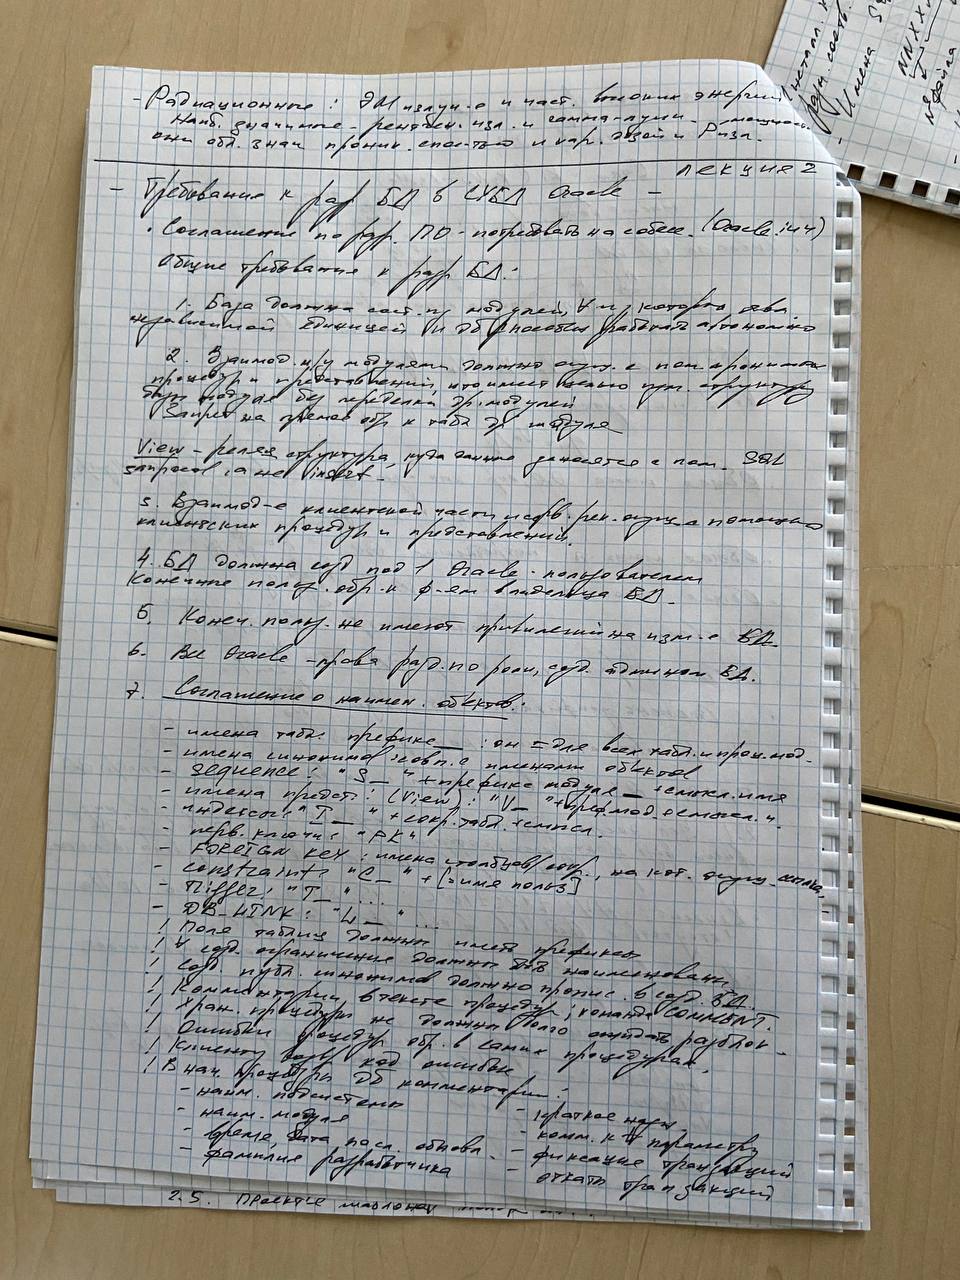 - Радиационные : ЭМ излуч-е и част. высоких энергий
Наиб. значимые - рентген. изл. и гамма-лучи.
они обл. знач проник. спос-тью и хар. дозой и
Лекция 2
- Требования к разр БД в СУБД Oracle -
. Соглашение по разр. ПО - потребовать на собес. (Oracle
Общие требования к разр БД:
1. База должна сост. из модулей, ∀ из которых явл.
независимой единицей и дб способен работать автономно
2. Взаимод. м/у модулями должно осущ. с пом. хранимых
процедур и представлений, что имеет целью структуру
модуля без переделки др. модулей
Запрет на прямое обр. к табл др модуля
View - реляц структура, куда данные заносятся с пом. SQL
запросов, а не insert.
3. Взаимод-е клиентской части и осущ с помощью
клиентских процедур и представлений.
4. БД должна созд под 1 Oracle - пользователем
Конечные польз. обр. к ф-ям владельца БД.
5. Конеч. польз. не имеют привилегий на изм-е БД
6. Все Oracle - права разд. по роли, созд. админом БД.
7. Соглашение о наимен. объектов:
- имена табл: префикс__ : он = для всех табл. и прог. мод.
- имена синонимов: совп. с именами объектов
- Sequence: "S__" + префикс модуля __ + смысл. имя
- имена предст: (View): "V_" + преф. мод. + смысл. и.
- индексы: "I__" + сокр. табл. + смысл.
- перв. ключи: "PK"
- FOREIGN KEY : имена столбцов/сокр., на кот. осущ. ссылка
- constraint: "C_" + [=имя польз]
- Tigger: "T_" ...
- DB_LINK: "L_" ...
! Поля таблиц должны иметь префиксы
! ∀ созд. ограничение должны наименованы
! Созд. публ. синонимов должно пропис. в созд. БД
! Комментарии в тексте процедур, команда COMMENT.
! Хран. процедуры не должны долго ожидать разблок-
! Ошибки процедур обр. в самих процедурах.
! Клиенту возвр код ошибки
! В нач. процедуры дб комментарии:
- наим. подсистемы
- наим. модуля
- время, дата посл. обновл.
- фамилия разработчика
- краткое назн.
- комм. к ∀ параметру
- фиксация транзакций
- откаты транзакций
2.5.